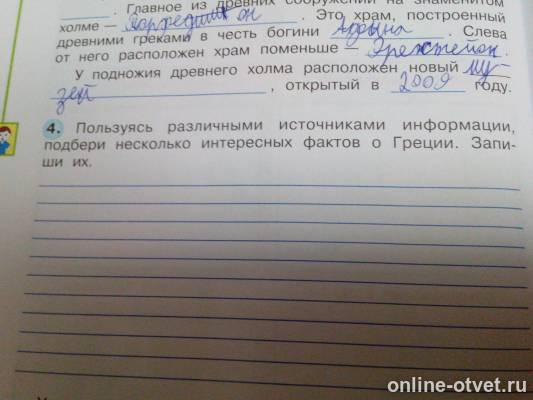 . Главное из древних сооружений на знаменитом
холме — . Это храм, построенный
древними греками в честь богини . Слева
от него расположен храм поменьше — Эрехтейон.
У подножия древнего холма расположен новый му-
зей , открытый в 2009 году.
4. Пользуясь различными источниками информации,
подбери несколько интересных фактов о Греции. Запи-
ши их.
online-otvet.ru